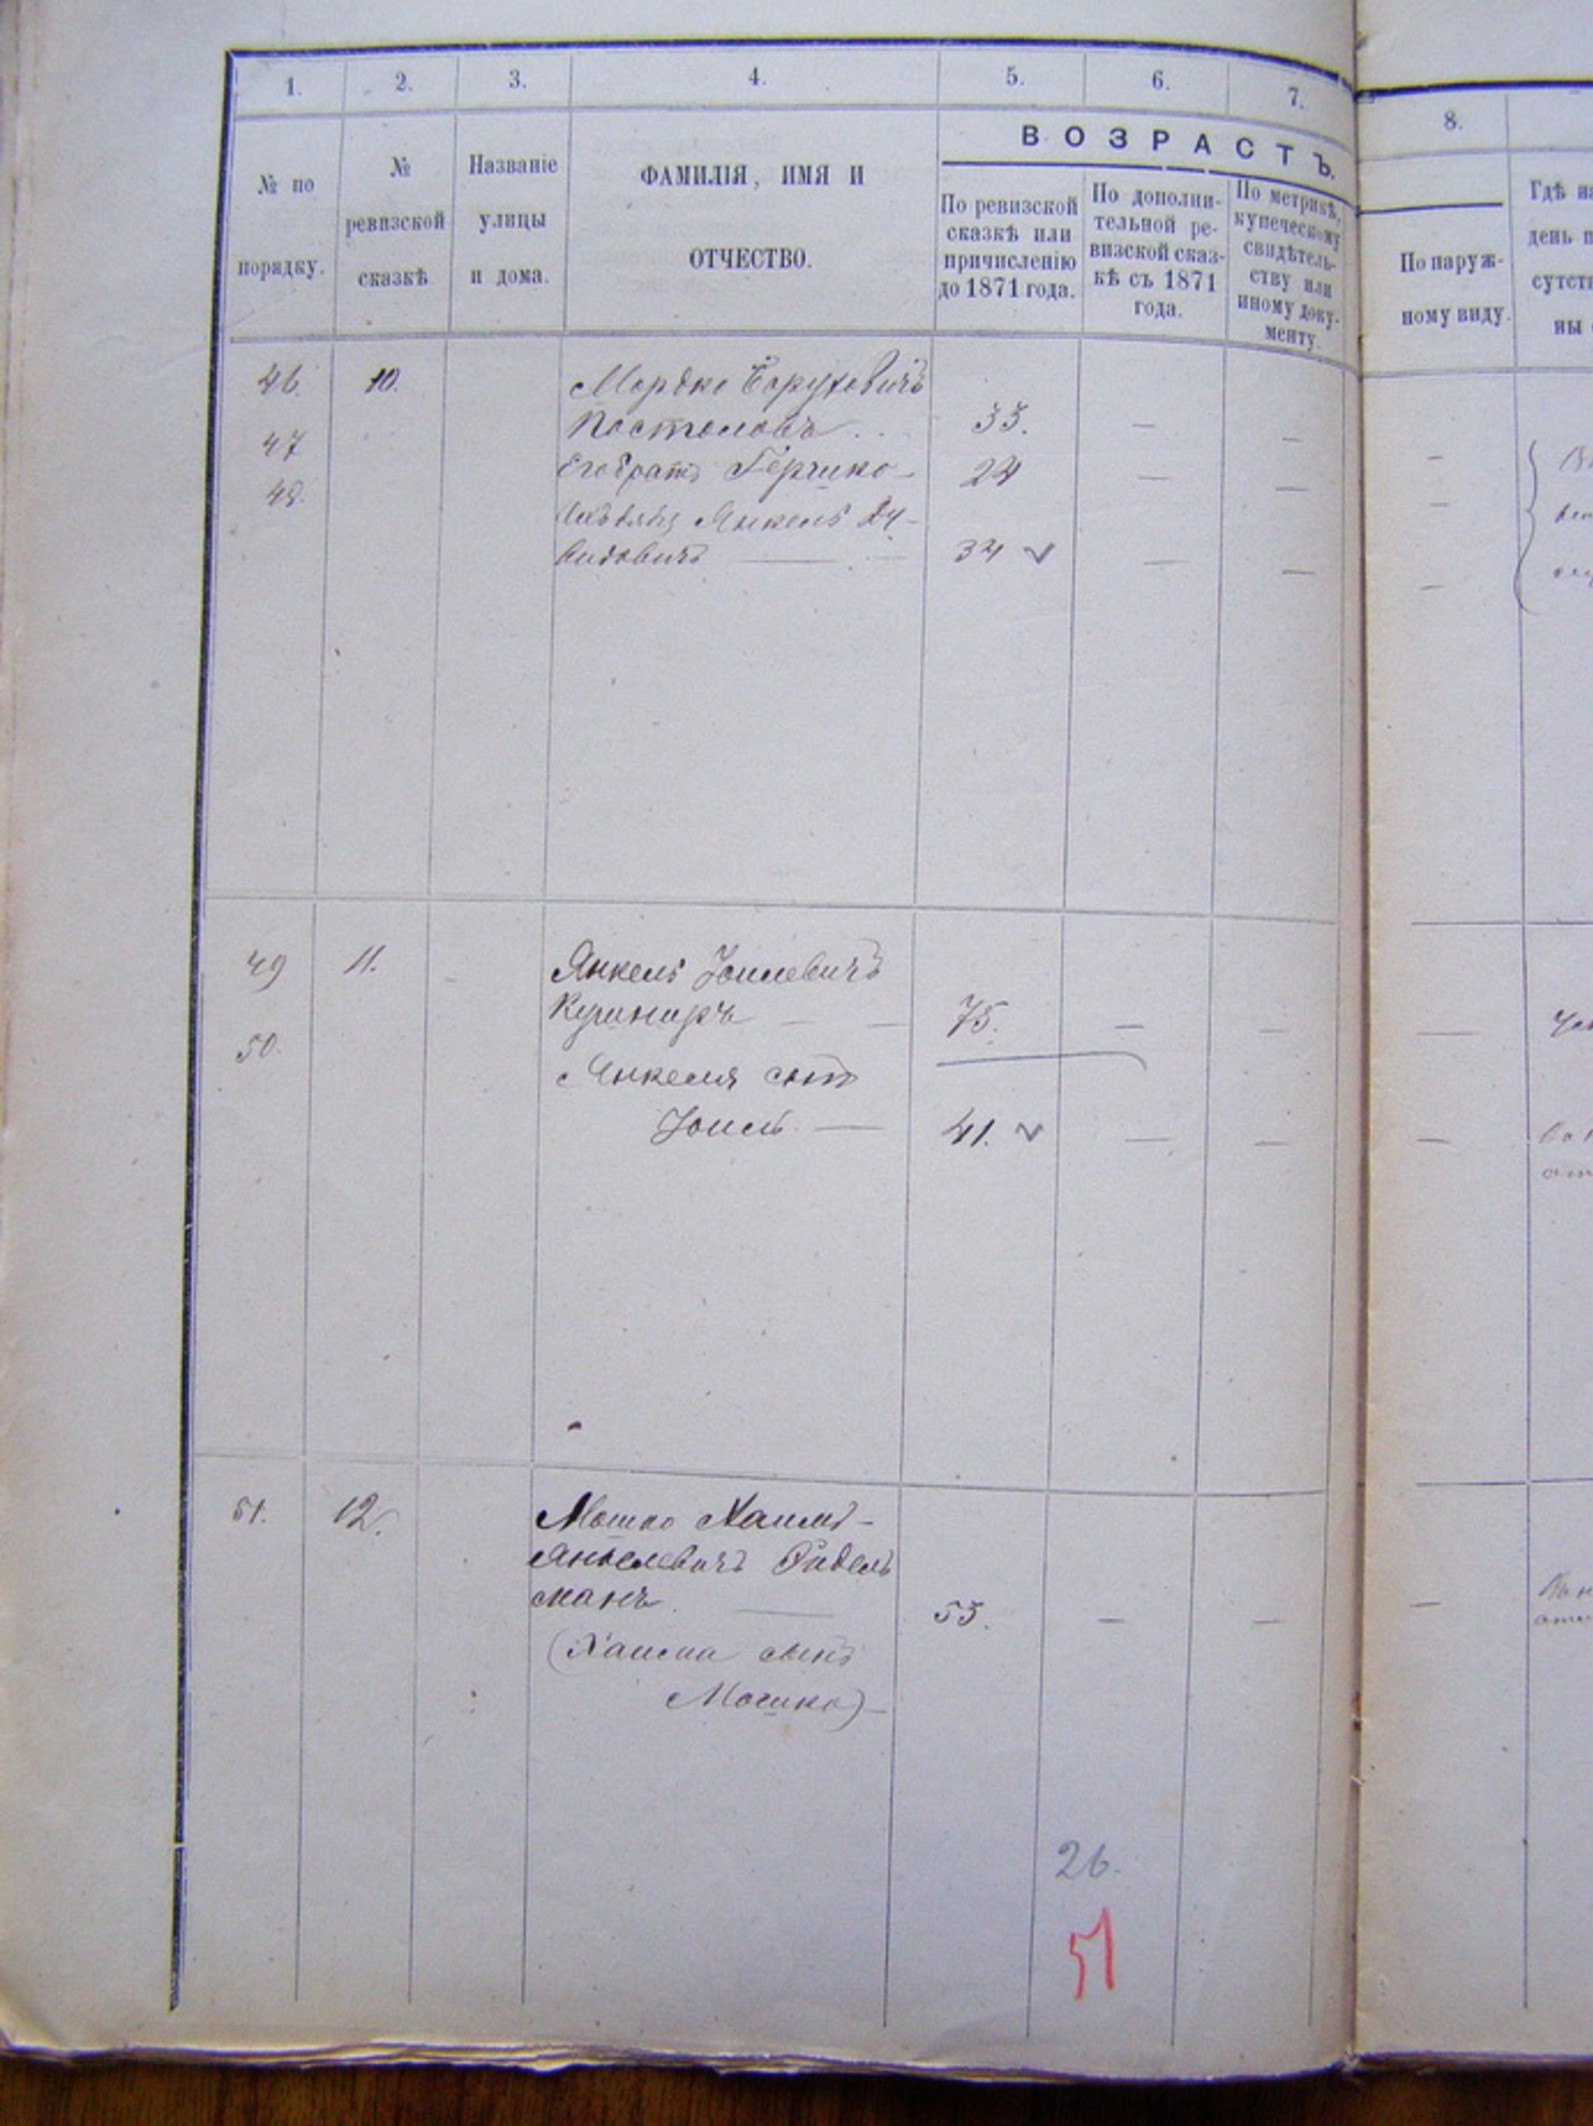 1. 2. 3. 4. 5. 6. 7. 8.
ВОЗРАСТЪ.
№ по
порядку.
№
ревизской
сказкѣ
Названіе
улицы
и дома.
ФАМИЛІЯ, ИМЯ И
ОТЧЕСТВО.
По ревизской
сказкѣ или
причисленію
до 1871 года.
По дополни-
тельной ре-
визской сказ-
кѣ съ 1871
года.
По метрикѣ,
купеческому
свидѣтель-
ству или
иному доку-
менту.
По наруж-
ному виду.
Гдѣ
день
46. 10. Мордко Боруховичъ
47 Постоловъ 33. — — —
48. Его братъ Гершко — 24 — — —
Янкель Да-
видовичъ — 34 ѵ — — —
49 11. Янкель Іоилевичъ
Кушниръ — — 75. — — —
50. Янкеля сынъ
Іоиль — 41. ѵ — — —
51. 12. Мошко Хаимъ-
Янкелевичъ Фидель
манъ. — 53. — — —
(Хаима сынъ
Мошко) —
26.
51